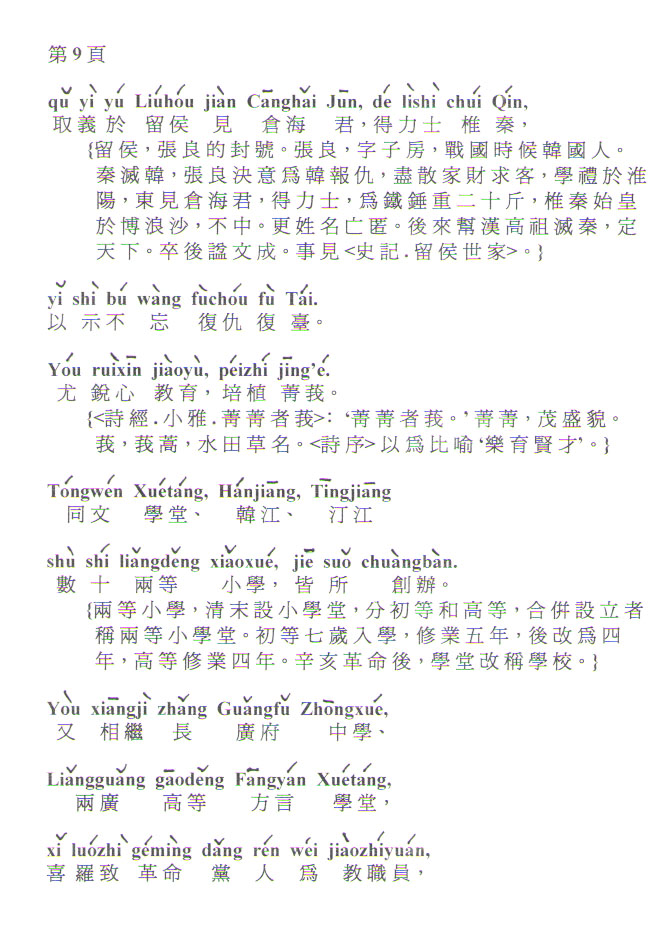 第9頁
qǔ yì yú Liúhóu jiàn Cānghǎi Jūn, dé lìshì chuí Qín,
取義於 留侯 見 倉海 君，得力士 椎 秦，
{留侯，張良的封號。張良，字子房，戰國時候韓國人。
秦滅韓，張良決意爲韓報仇，盡散家財求客，學禮於淮
陽，東見倉海君，得力士，爲鐵錘重二十斤，椎秦始皇
於博浪沙，不中。更姓名亡匿。後來幫漢高祖滅秦，定
天下。卒後諡文成。事見<史記.留侯世家>。}
yǐ shì bú wàng fùchóu fù Tái.
以 示不 忘 復仇 復 臺。
Yóu ruìxīn jiàoyù, péizhí jīng'é.
尤 銳心 教育，培植 菁莪。
{<詩經.小雅.菁菁者莪>：‘菁菁者莪。’菁菁，茂盛貌。
莪，莪蒿，水田草名。<詩序>以爲比喻‘樂育賢才’。}
Tóngwén Xuétáng, Hánjiāng, Tīngjiāng
同文 學堂、 韓江、 汀江
shù shí liǎngděng xiǎoxué, jiē suǒ chuàngbàn.
數 十 兩等 小學，皆 所 創辦。
{兩等小學，清末設小學堂，分初等和高等，合併設立者
稱兩等小學堂。初等七歲入學，修業五年，後改爲四
年，高等修業四年。辛亥革命後，學堂改稱學校。}
Yòu xiāngjì zhǎng Guǎngfǔ Zhōngxué,
又 相繼 長 廣府 中學、
Liǎngguǎng gāoděng Fāngyán Xuétáng,
兩廣 高等 方言 學堂，
xǐ luózhì gémìng dǎng rén wéi jiàozhíyuán,
喜 羅致 革命 黨 人 爲 教職員，